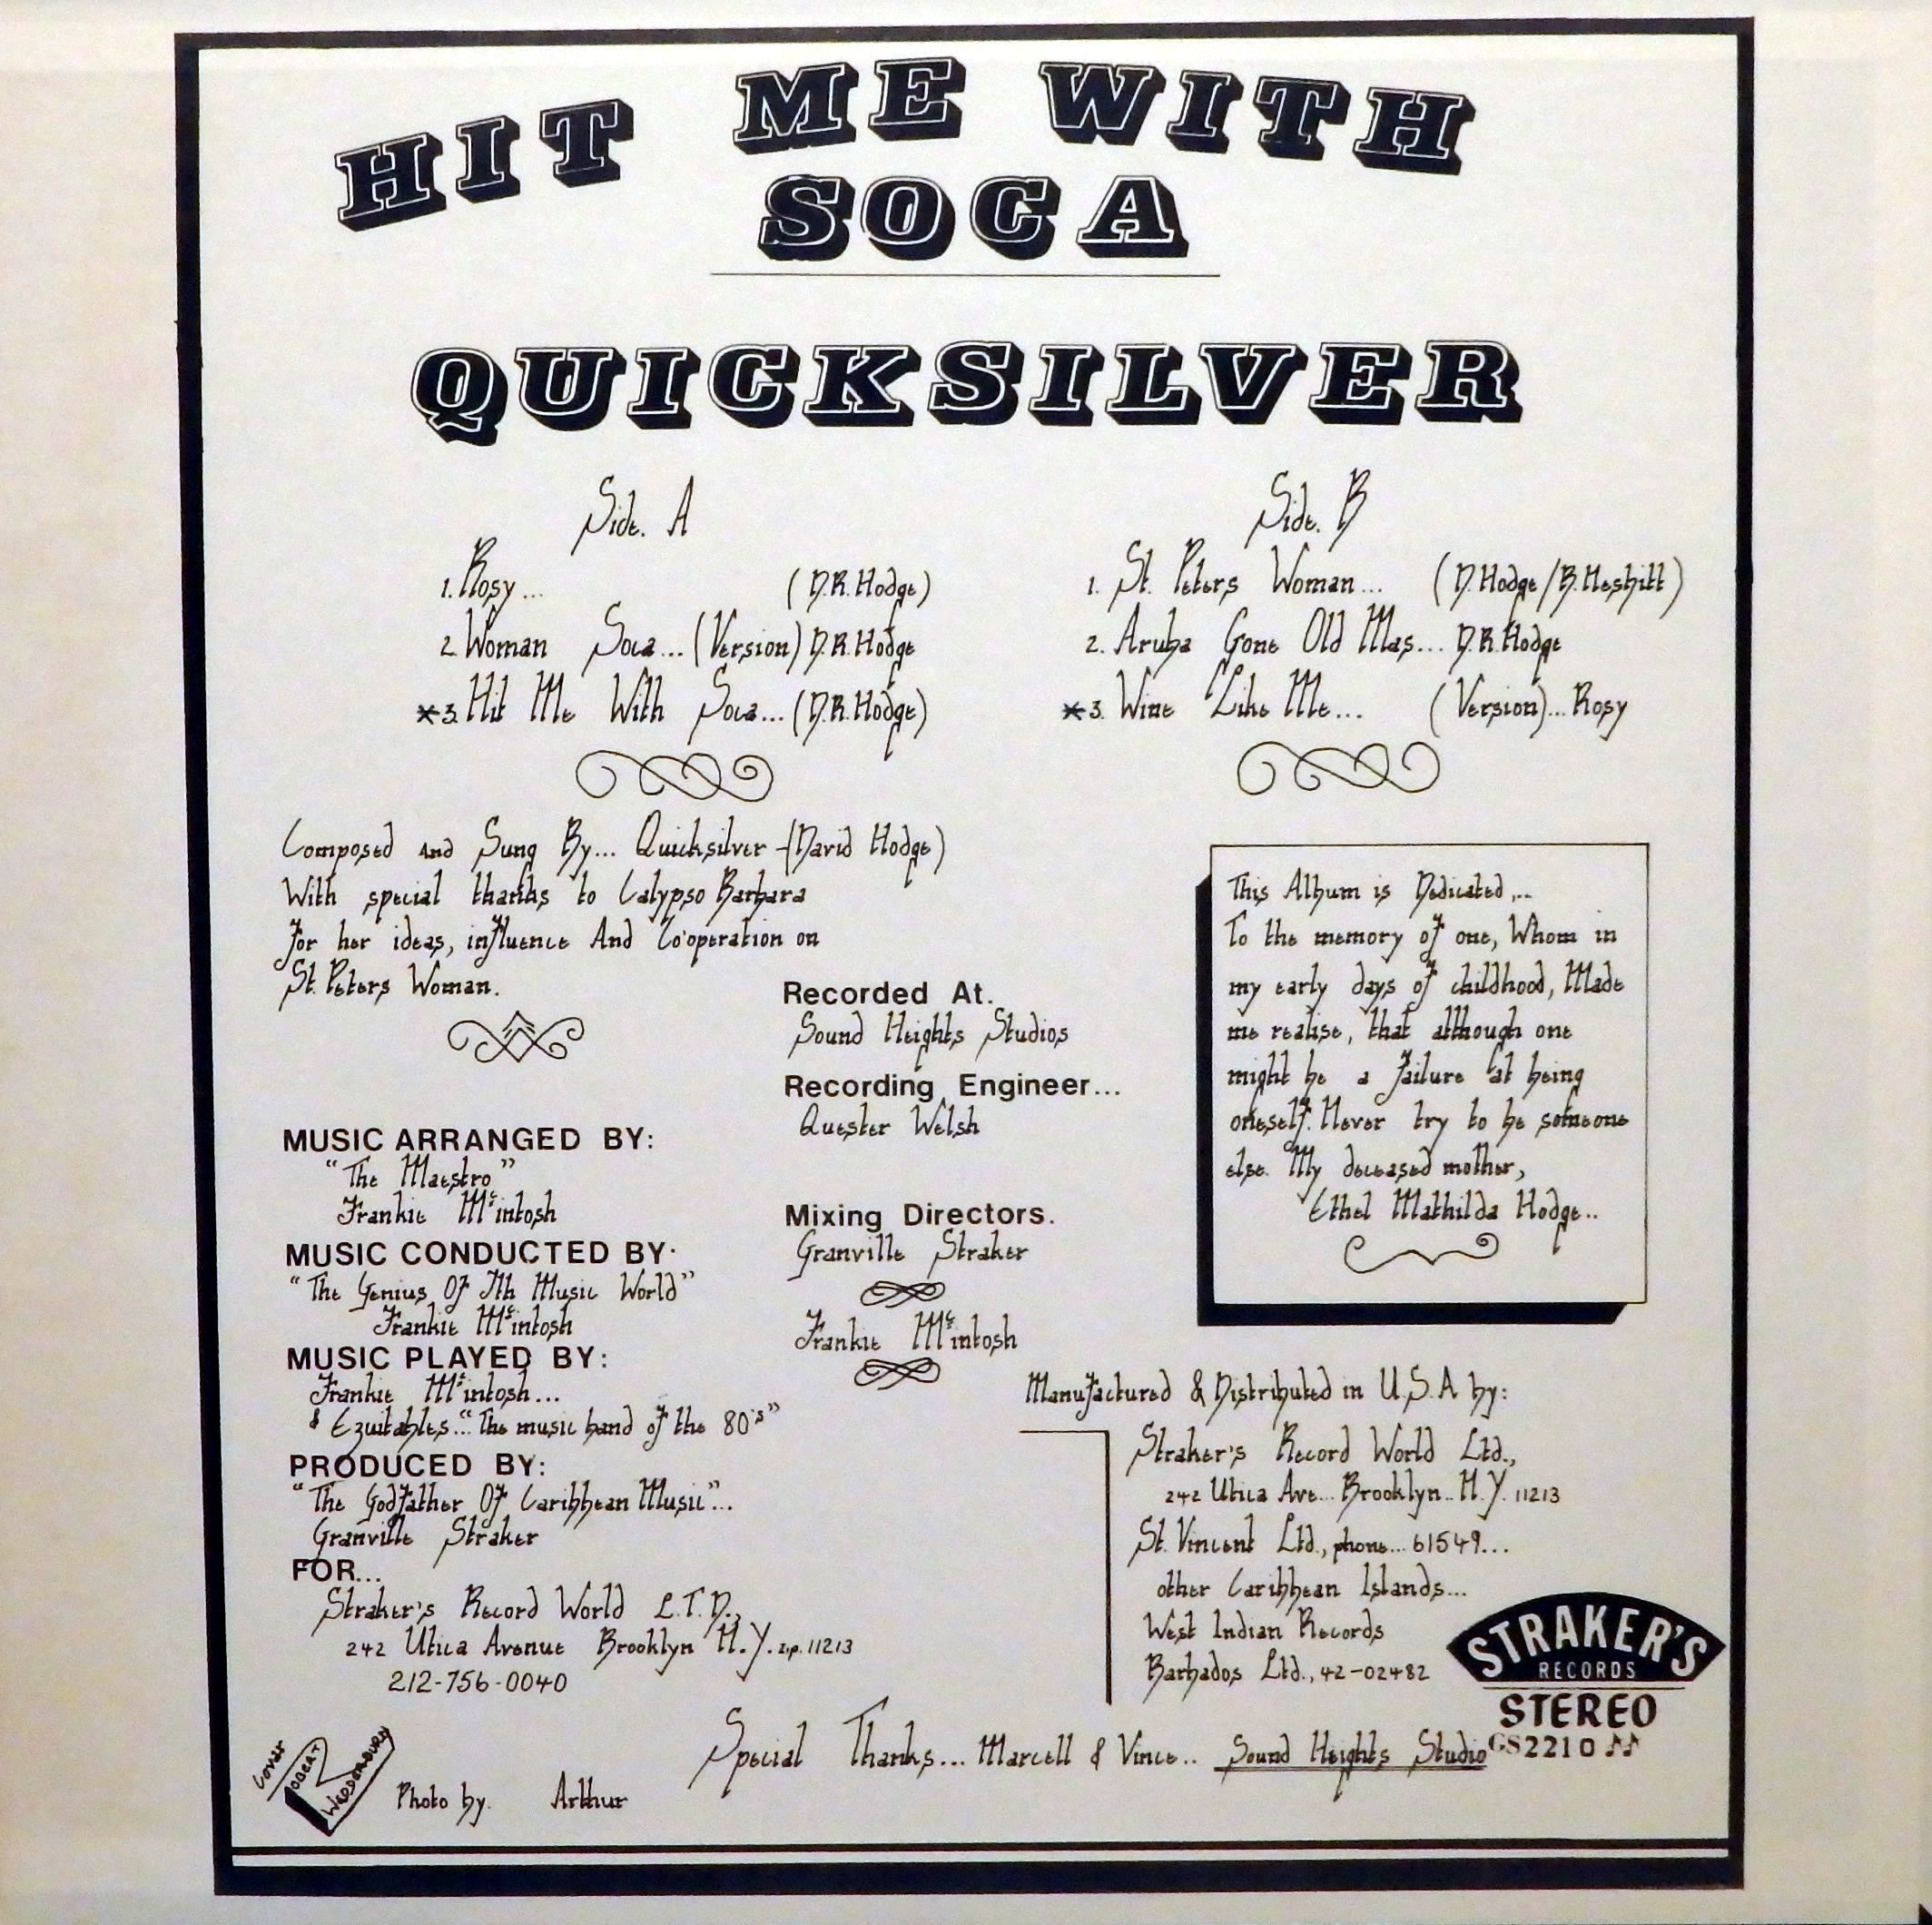 HIT ME WITH
SOCA
QUICKSILVER
Side. A
1. Rosy... (D.R. Hodge)
2. Woman Soca... (Version) D.R. Hodge
*3. Hit Me With Soca... (D.R. Hodge)
Side. B
1. St. Peters Woman... (D. Hodge/B. Neshitt)
2. Aruba Gone Old Mas... D.R. Hodge
*3. Wine Like Me... (Version)... Rosy
Composed And Sung By... Quicksilver -(David Hodge)
With special thanks to Calypso Barbara
For her ideas, influence And Co'operation on
St. Peters Woman.
MUSIC ARRANGED BY:
"The Maestro"
Frankie Mc intosh
MUSIC CONDUCTED BY.
"The Genius Of Th Music World"
Frankie Mc intosh
MUSIC PLAYED BY:
Frankie Mc intosh...
& Equitables..."The music band of the 80's"
PRODUCED BY:
"The Godfather Of Caribbean Music"...
Granville Straker
FOR...
Straker's Record World L.T.D.,
242 Utica Avenue Brooklyn N.Y. zip. 11213
212-756-0040
Recorded At.
Sound Heights Studios
Recording Engineer...
Quester Welsh
Mixing Directors.
Granville Straker
Frankie Mc intosh
This Album is Dedicated...
To the memory of one, Whom in
my early days of childhood, Made
me realise, that although one
might be a failure at being
oneself. Never try to be someone
else. My deceased mother,
Ethel Mathilda Hodge..
Manufactured & Distributed in U.S.A by:
Straker's Record World Ltd.,
242 Utica Ave... Brooklyn.. N.Y. 11213
St. Vincent Ltd., phone... 61549...
other Caribbean Islands...
West Indian Records
Barbados Ltd., 42-02482
STRAKER'S
RECORDS
STEREO
GS2210
Special Thanks... Marcell & Vince.. Sound Heights Studio
Cover
ROBERT
WEDDERBURN
Photo by. Arthur